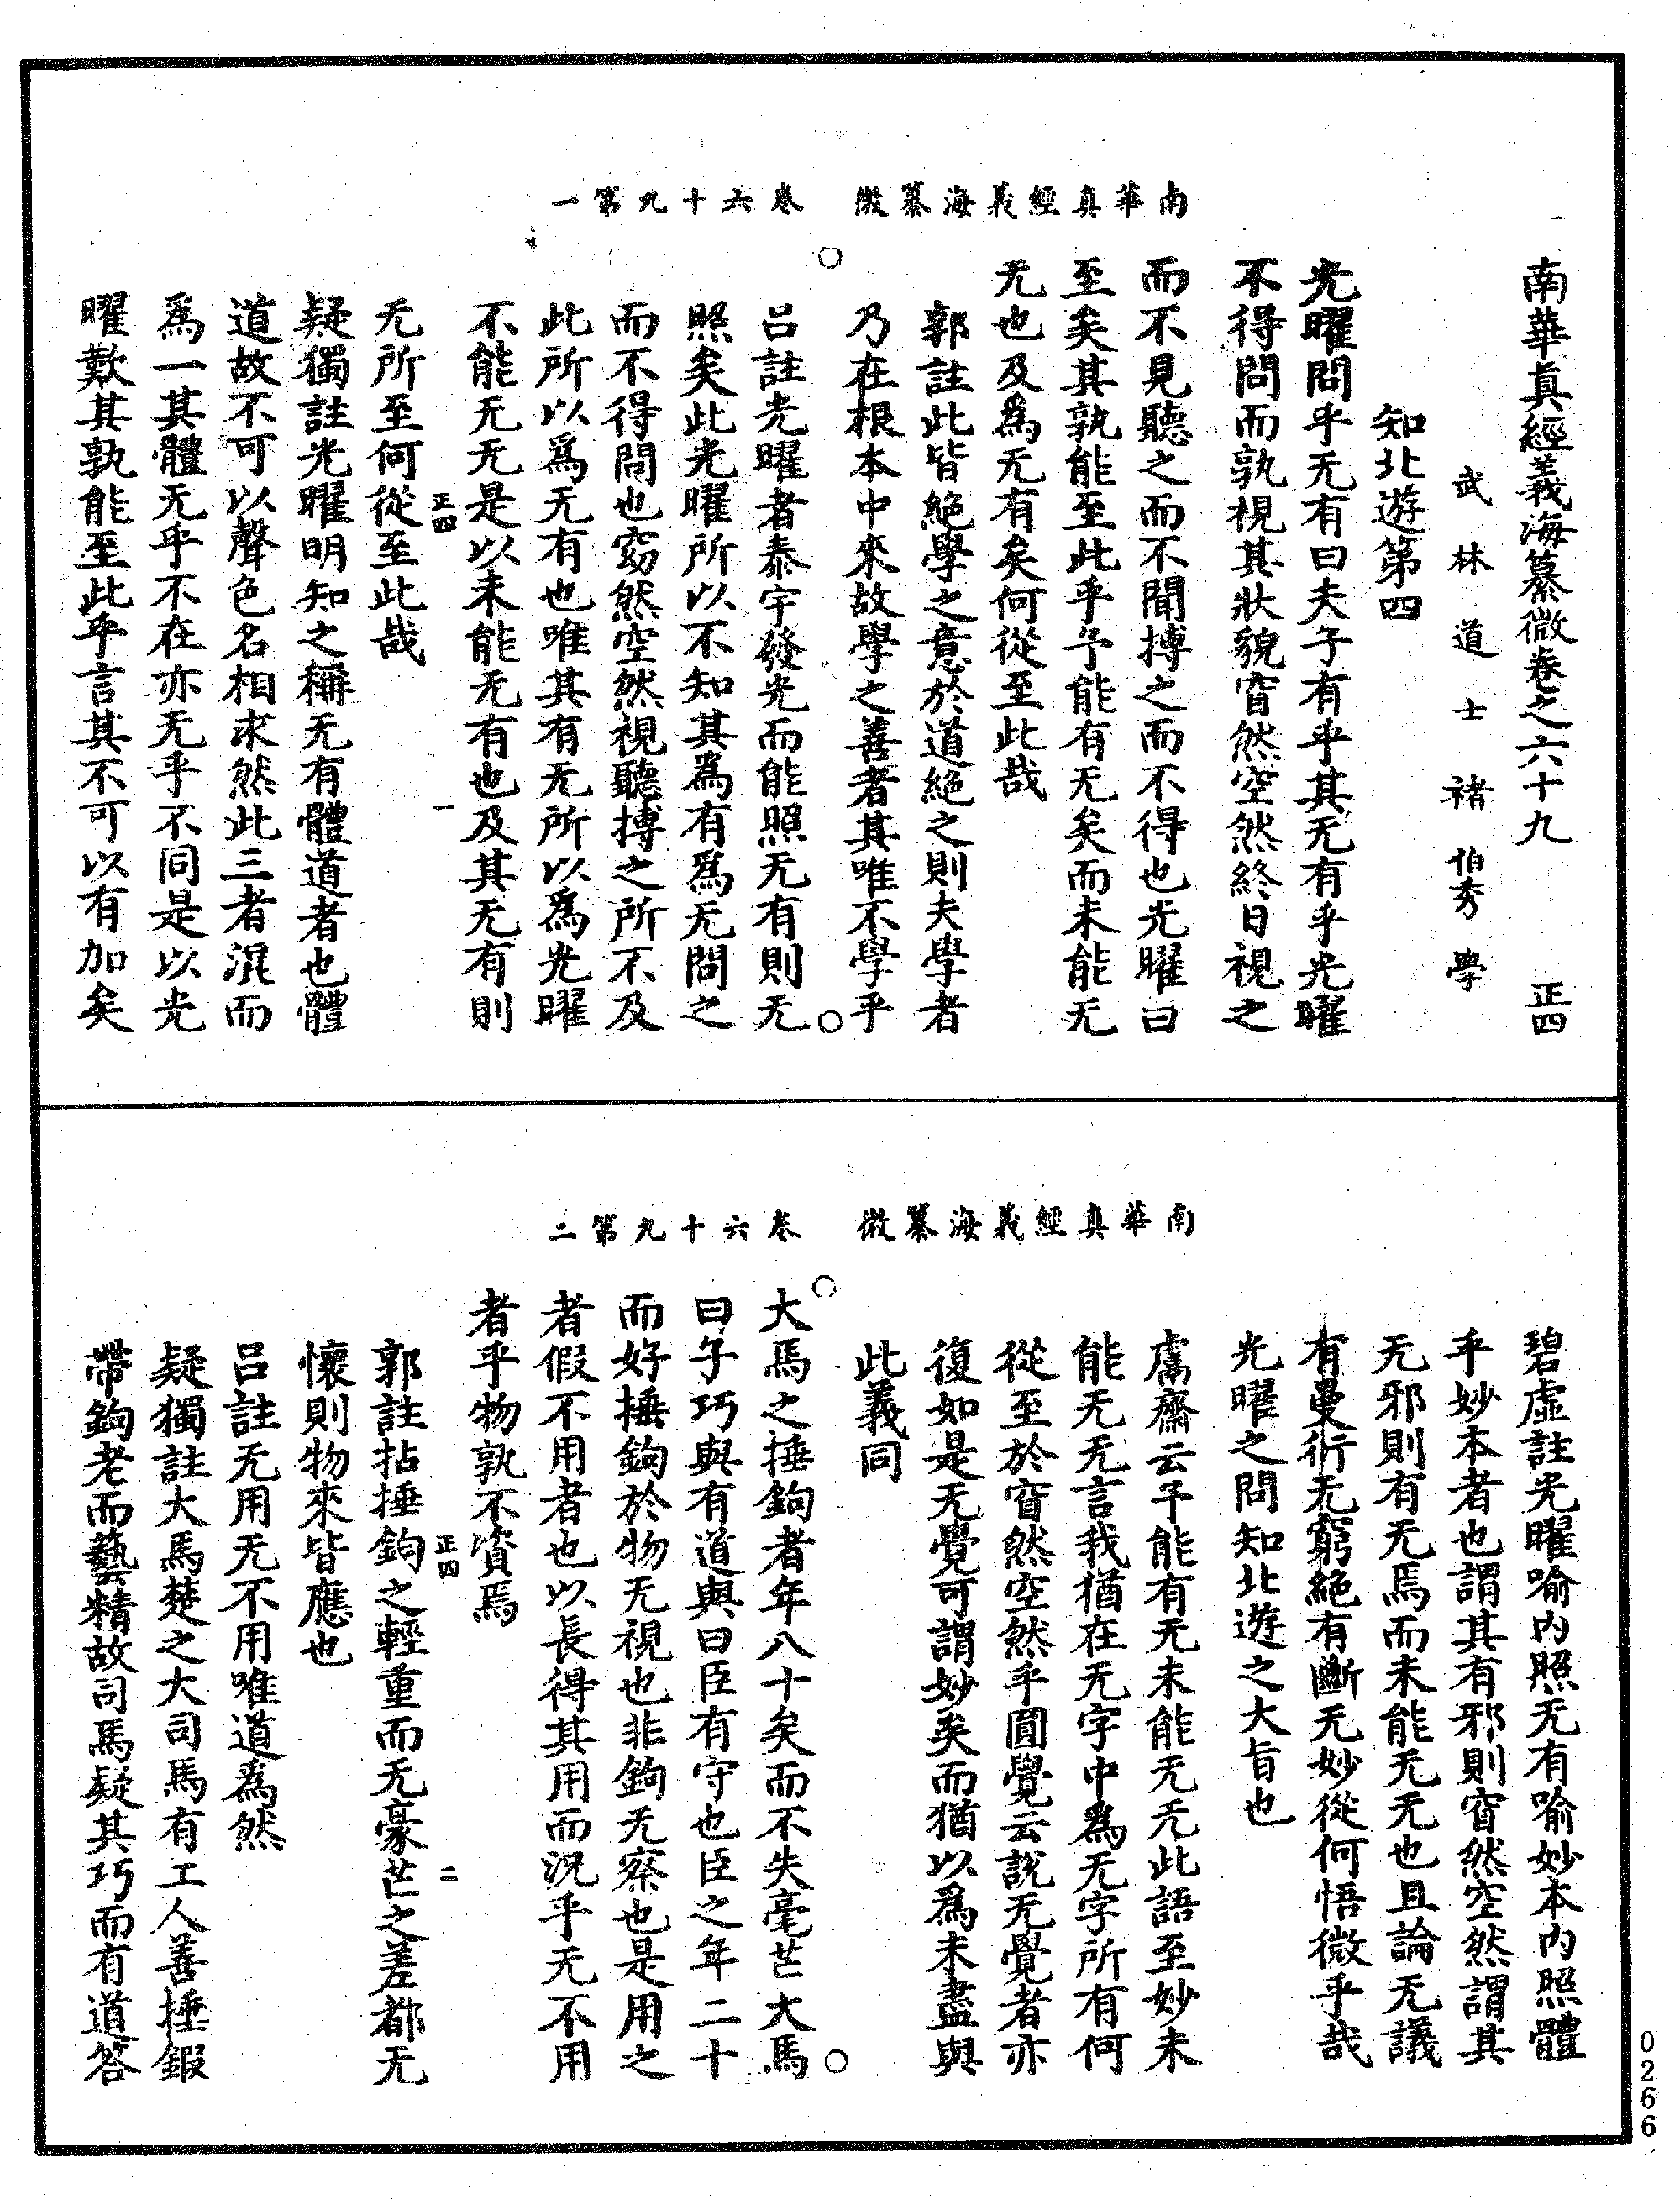 南華真經義海纂微　卷六十九第一
南華眞經義海纂微卷之六十九　正四
武林道士褚伯秀學
知北遊第四
光曜問乎无有曰夫子有乎其无有乎光曜
不得問而孰視其狀貌窅然空然終日視之
而不見聽之而不聞搏之而不得也光曜曰
至矣其孰能至此乎予能有无矣而未能无
无也及爲无有矣何從至此哉
郭註此皆絕學之意於道絕之則夫學者
乃在根本中來故學之善者其唯不學乎
呂註光曜者泰宇發光而能照无有則无
照矣此光曜所以不知其為有爲无問之
而不得問也窈然空然視聽搏之所不及
此所以爲无有也唯其有无所以爲光曜
不能无无是以未能无有也及其无有則
正四　一
无所至何從至此哉
疑獨註光曜明知之稱无有體道者也體
道故不可以聲色名相求然此三者混而
爲一其體无乎不在亦无乎不同是以光
曜歎其孰能至此乎言其不可以有加矣
南華真經義海纂微　卷六十九第二
碧虛註光曜喻內照无有喻妙本內照體
乎妙本者也謂其有邪則窅然空然謂其
无邪則有无焉而未能无无也且論无議
有曼衍无窮絕有斷无妙從何悟微乎哉
光曜之問知北遊之大旨也
鬳齋云予能有无未能无无此語至妙未
能无无言我猶在无字中為无字所有何
從至於窅然空然乎圓覺云說无覺者亦
復如是无覺可謂妙矣而猶以爲未盡與
此義同
大馬之捶鉤者年八十矣而不失毫芒大馬
曰子巧與有道與曰臣有守也臣之年二十
而好捶鉤於物无視也非鉤无察也是用之
者假不用者也以長得其用而況乎无不用
者乎物孰不資焉
正四　二
郭註拈捶鉤之輕重而无豪芒之差都无
懷則物來皆應也
呂註无用无不用唯道爲然
疑獨註大馬楚之大司馬有工人善捶鍜
帶鉤老而藝精故司馬疑其巧而有道答
0266